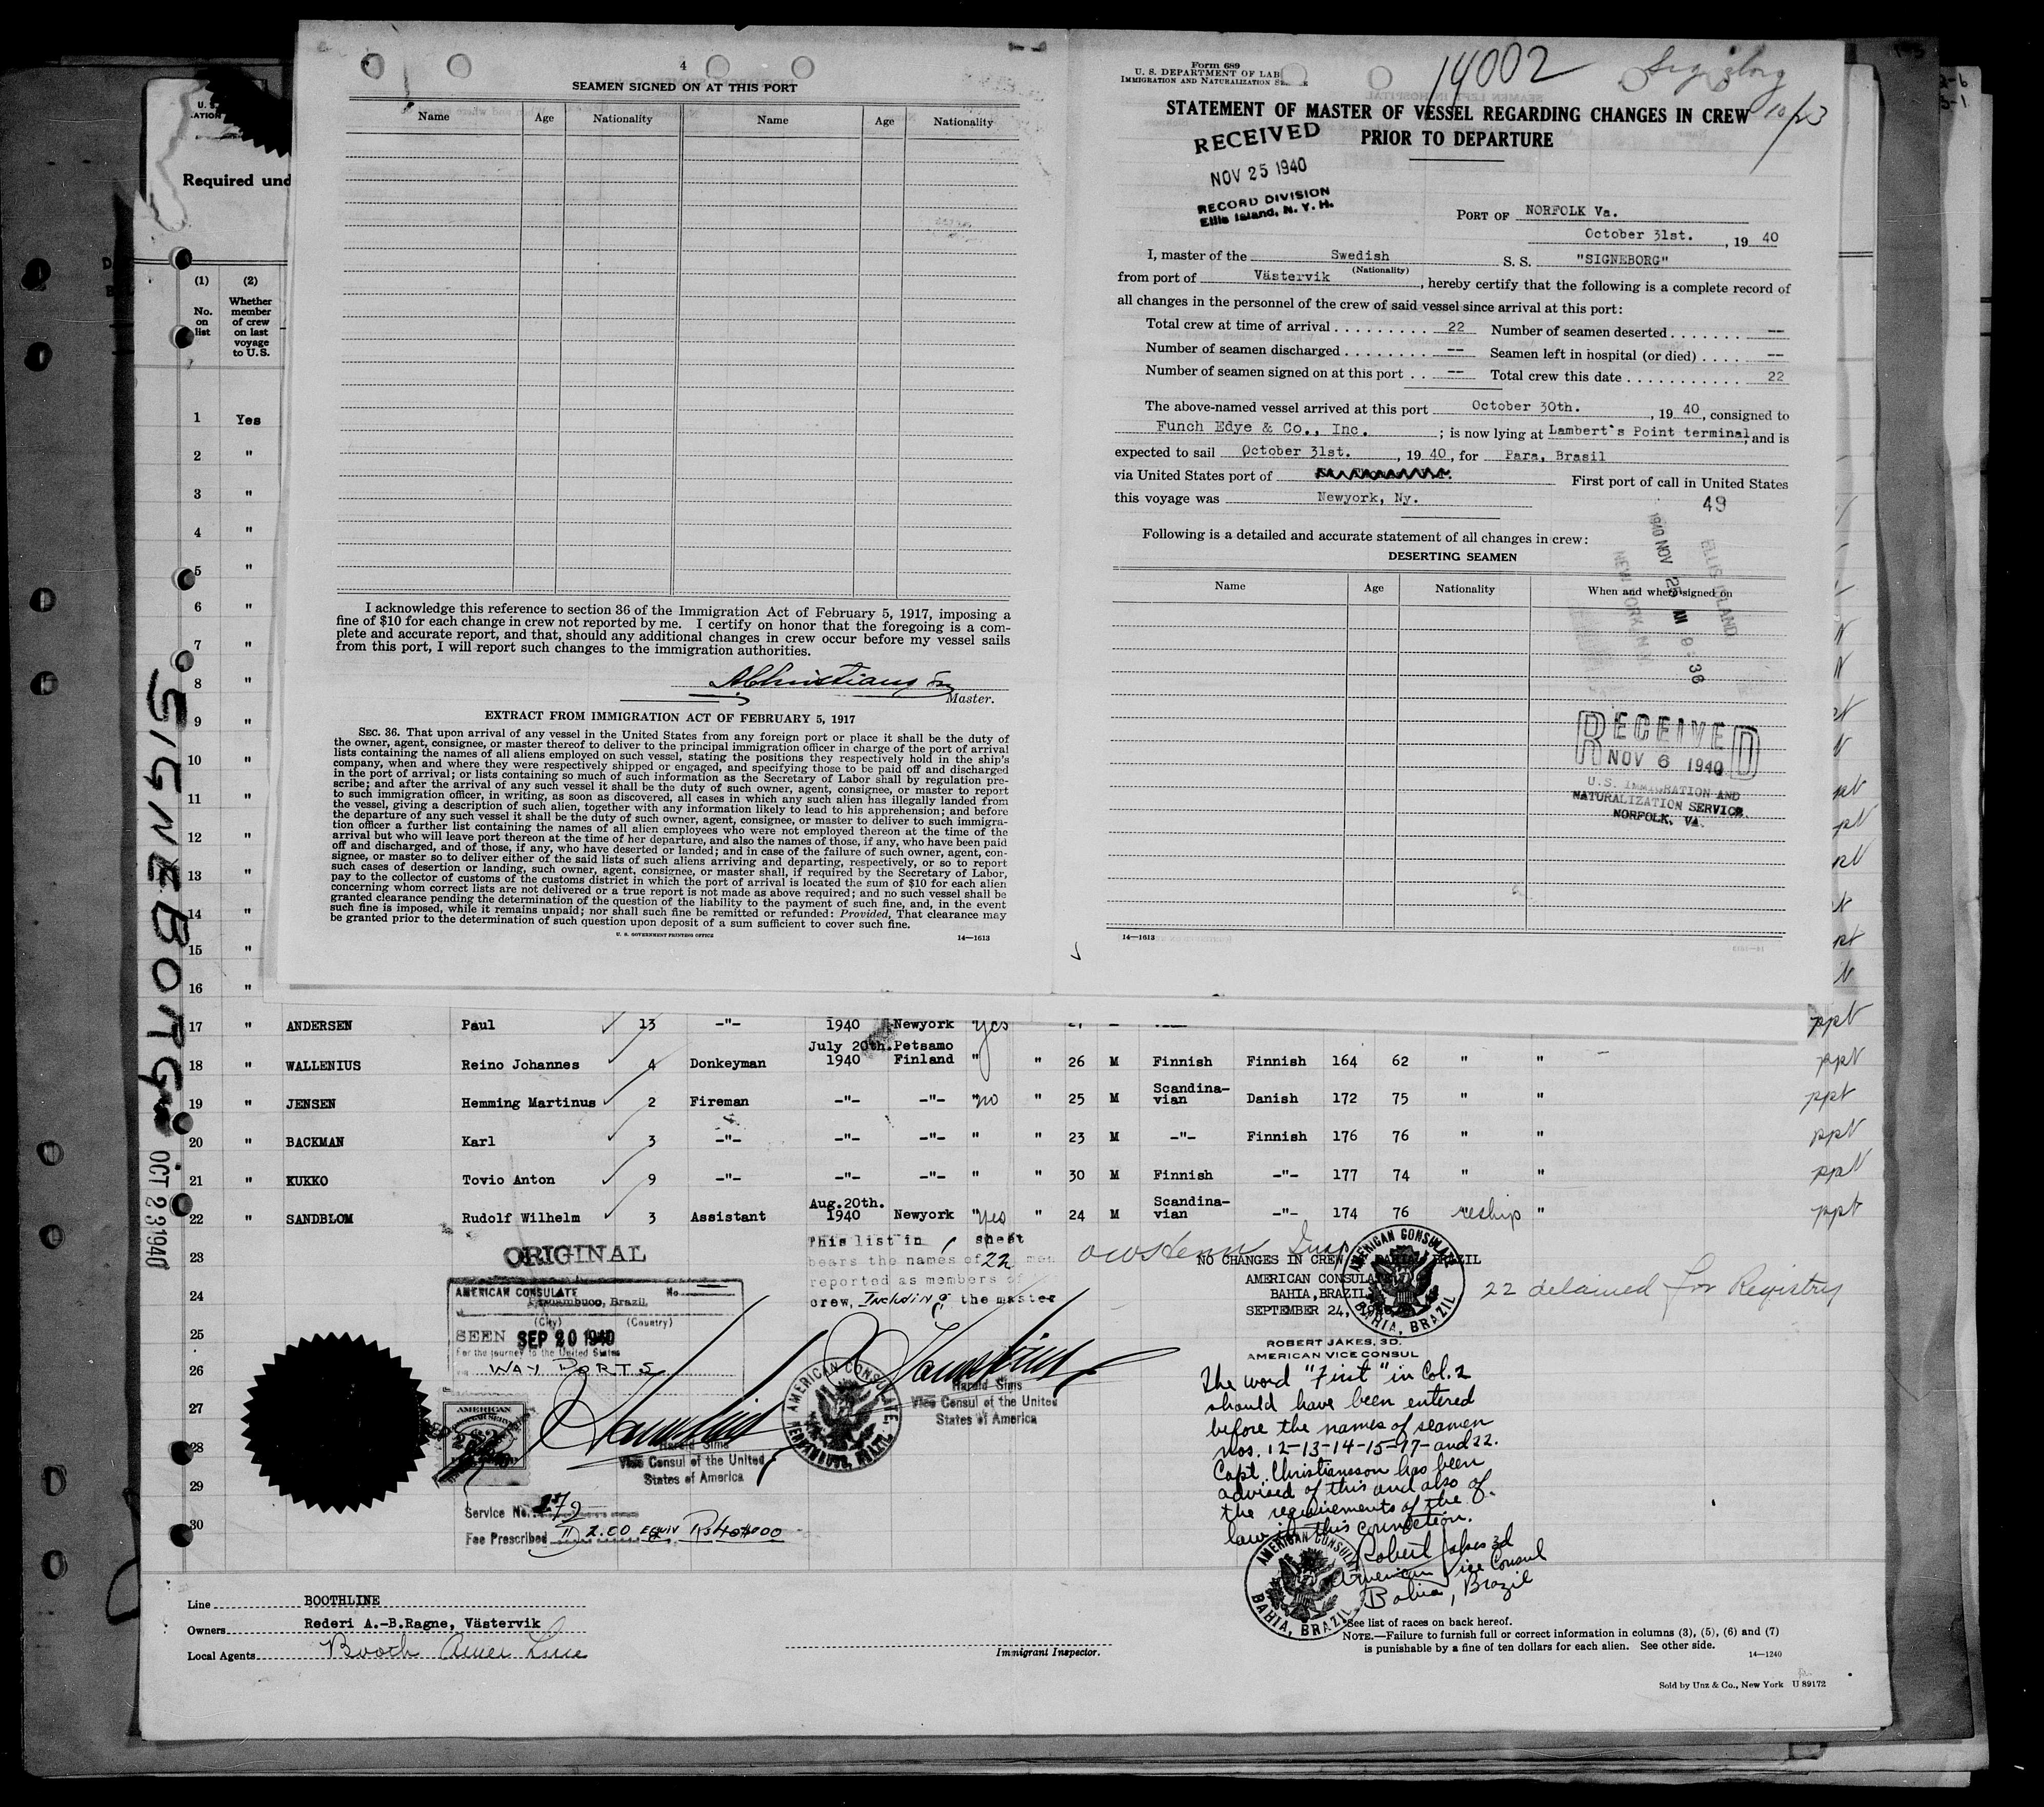 4
SEAMEN SIGNED ON AT THIS PORT
Name Age Nationality Name Age Nationality
I acknowledge this reference to section 36 of the Immigration Act of February 5, 1917, imposing a
fine of $10 for each change in crew not reported by me. I certify on honor that the foregoing is a com-
plete and accurate report, and that, should any additional changes in crew occur before my vessel sails
from this port, I will report such changes to the immigration authorities.
Master.
EXTRACT FROM IMMIGRATION ACT OF FEBRUARY 5, 1917
SEC. 36. That upon arrival of any vessel in the United States from any foreign port or place it shall be the duty of
the owner, agent, consignee, or master thereof to deliver to the principal immigration officer in charge of the port of arrival
lists containing the names of all aliens employed on such vessel, stating the positions they respectively hold in the ship's
company, when and where they were respectively shipped or engaged, and specifying those to be paid off and discharged
in the port of arrival; or lists containing so much of such information as the Secretary of Labor shall by regulation pre-
scribe; and after the arrival of any such vessel it shall be the duty of such owner, agent, consignee, or master to report
to such immigration officer, in writing, as soon as discovered, all cases in which any such alien has illegally landed from
the vessel, giving a description of such alien, together with any information likely to lead to his apprehension; and before
the departure of any such vessel it shall be the duty of such owner, agent, consignee, or master to deliver to such immigra-
tion officer a further list containing the names of all alien employees who were not employed thereon at the time of the
arrival but who will leave port thereon at the time of her departure, and also the names of those, if any, who have been paid
off and discharged, and of those, if any, who have deserted or landed; and in case of the failure of such owner, agent, con-
signee, or master so to deliver either of the said lists of such aliens arriving and departing, respectively, or so to report
such cases of desertion or landing, such owner, agent, consignee, or master shall, if required by the Secretary of Labor,
pay to the collector of customs of the customs district in which the port of arrival is located the sum of $10 for each alien
concerning whom correct lists are not delivered or a true report is not made as above required; and no such vessel shall be
granted clearance pending the determination of the question of the liability to the payment of such fine, and, in the event
such fine is imposed, while it remains unpaid; nor shall such fine be remitted or refunded: Provided, That clearance may
be granted prior to the determination of such question upon deposit of a sum sufficient to cover such fine.
U. S. GOVERNMENT PRINTING OFFICE 14—1613
Form 689
U. S. DEPARTMENT OF LAB
IMMIGRATION AND NATURALIZATION SE
14002
10/23
STATEMENT OF MASTER OF VESSEL REGARDING CHANGES IN CREW
PRIOR TO DEPARTURE
RECEIVED
NOV 25 1940
RECORD DIVISION
Ellis Island, N. Y. H.
PORT OF NORFOLK Va.
October 31st. , 19 40
I, master of the Swedish S. S. "SIGNEBORG"
(Nationality)
from port of Västervik , hereby certify that the following is a complete record of
all changes in the personnel of the crew of said vessel since arrival at this port:
Total crew at time of arrival . . . . . . . . . . 22 Number of seamen deserted . . . . . . . --
Number of seamen discharged . . . . . . . . -- Seamen left in hospital (or died) . . . . --
Number of seamen signed on at this port . . -- Total crew this date . . . . . . . . . . . 22
The above-named vessel arrived at this port October 30th. , 19 40, consigned to
Funch Edye & Co., Inc. ; is now lying at Lambert's Point terminal, and is
expected to sail October 31st. , 19 40, for Para, Brasil
via United States port of First port of call in United States
this voyage was Newyork, Ny.
49
Following is a detailed and accurate statement of all changes in crew:
DESERTING SEAMEN
Name Age Nationality When and where signed on
ELLIS ISLAND
RECEIVED
NOV 6 1940
U.S. IMMIGRATION AND
NATURALIZATION SERVICE
NORFOLK, VA.
14—1613
Required und
(1) (2)
No. on list
Whether member of crew on last voyage to U.S.
1 Yes
2 "
3 "
4 "
5 "
6 "
7 "
8 "
9 "
10 "
11 "
12 "
13 "
14 "
15 "
16 "
SIGNEBORG
OCT 23 1940
17 " ANDERSEN Paul 13 -"- 1940 Newyork yes ppt
18 " WALLENIUS Reino Johannes 4 Donkeyman July 20th. 1940 Petsamo Finland " " 26 M Finnish Finnish 164 62 " " ppt
19 " JENSEN Hemming Martinus 2 Fireman -"- -"- "no " 25 M Scandina-vian Danish 172 75 " " ppt
20 " BACKMAN Karl 3 -"- -"- -"- " " 23 M -"- Finnish 176 76 " " ppt
21 " KUKKO Tovio Anton 9 -"- -"- -"- " " 30 M Finnish -"- 177 74 " " ppt
22 " SANDBLOM Rudolf Wilhelm 3 Assistant Aug.20th. 1940 Newyork "yes " 24 M Scandina-vian -"- 174 76 reship " ppt
23
24
25
26
27
28
29
30
ORIGINAL
AMERICAN CONSULATE No.
Pernambuco, Brazil
(City) (Country)
SEEN SEP 20 1940
For the journey to the United States
WAY PORTS
Harold Sims
Vice Consul of the United
States of America
Service No. 272
Fee Prescribed 2.00 EQUIV Rs40$000
This list in 1 sheet
bears the names of 22 men
reported as members of
crew, Including the master
AMERICAN CONSULATE
PERNAMBUCO, BRAZIL
Harold Sims
Vice Consul of the United
States of America
NO CHANGES IN CREW BAHIA, BRAZIL
AMERICAN CONSULATE
BAHIA, BRAZIL
SEPTEMBER 24, 1940
AMERICAN CONSULATE
BAHIA, BRAZIL
22 detained for Registry
ROBERT JAKES, 3D.
AMERICAN VICE CONSUL
The word "First" in Col. 2
should have been entered
before the names of seamen
nos. 12-13-14-15-17- and 22.
Capt. Christiansson has been
advised of this and also of
the requirements of the
law in this connection.
Robert Jakes 3d
American Vice Consul
Bahia, Brazil
AMERICAN CONSULATE
BAHIA, BRAZIL
Line BOOTHLINE
Owners Rederi A.-B.Ragne, Västervik
Local Agents Booth Amer Line
Immigrant Inspector.
See list of races on back hereof.
NOTE.—Failure to furnish full or correct information in columns (3), (5), (6) and (7)
is punishable by a fine of ten dollars for each alien. See other side.
14—1240
Sold by Unz & Co., New York U 89172